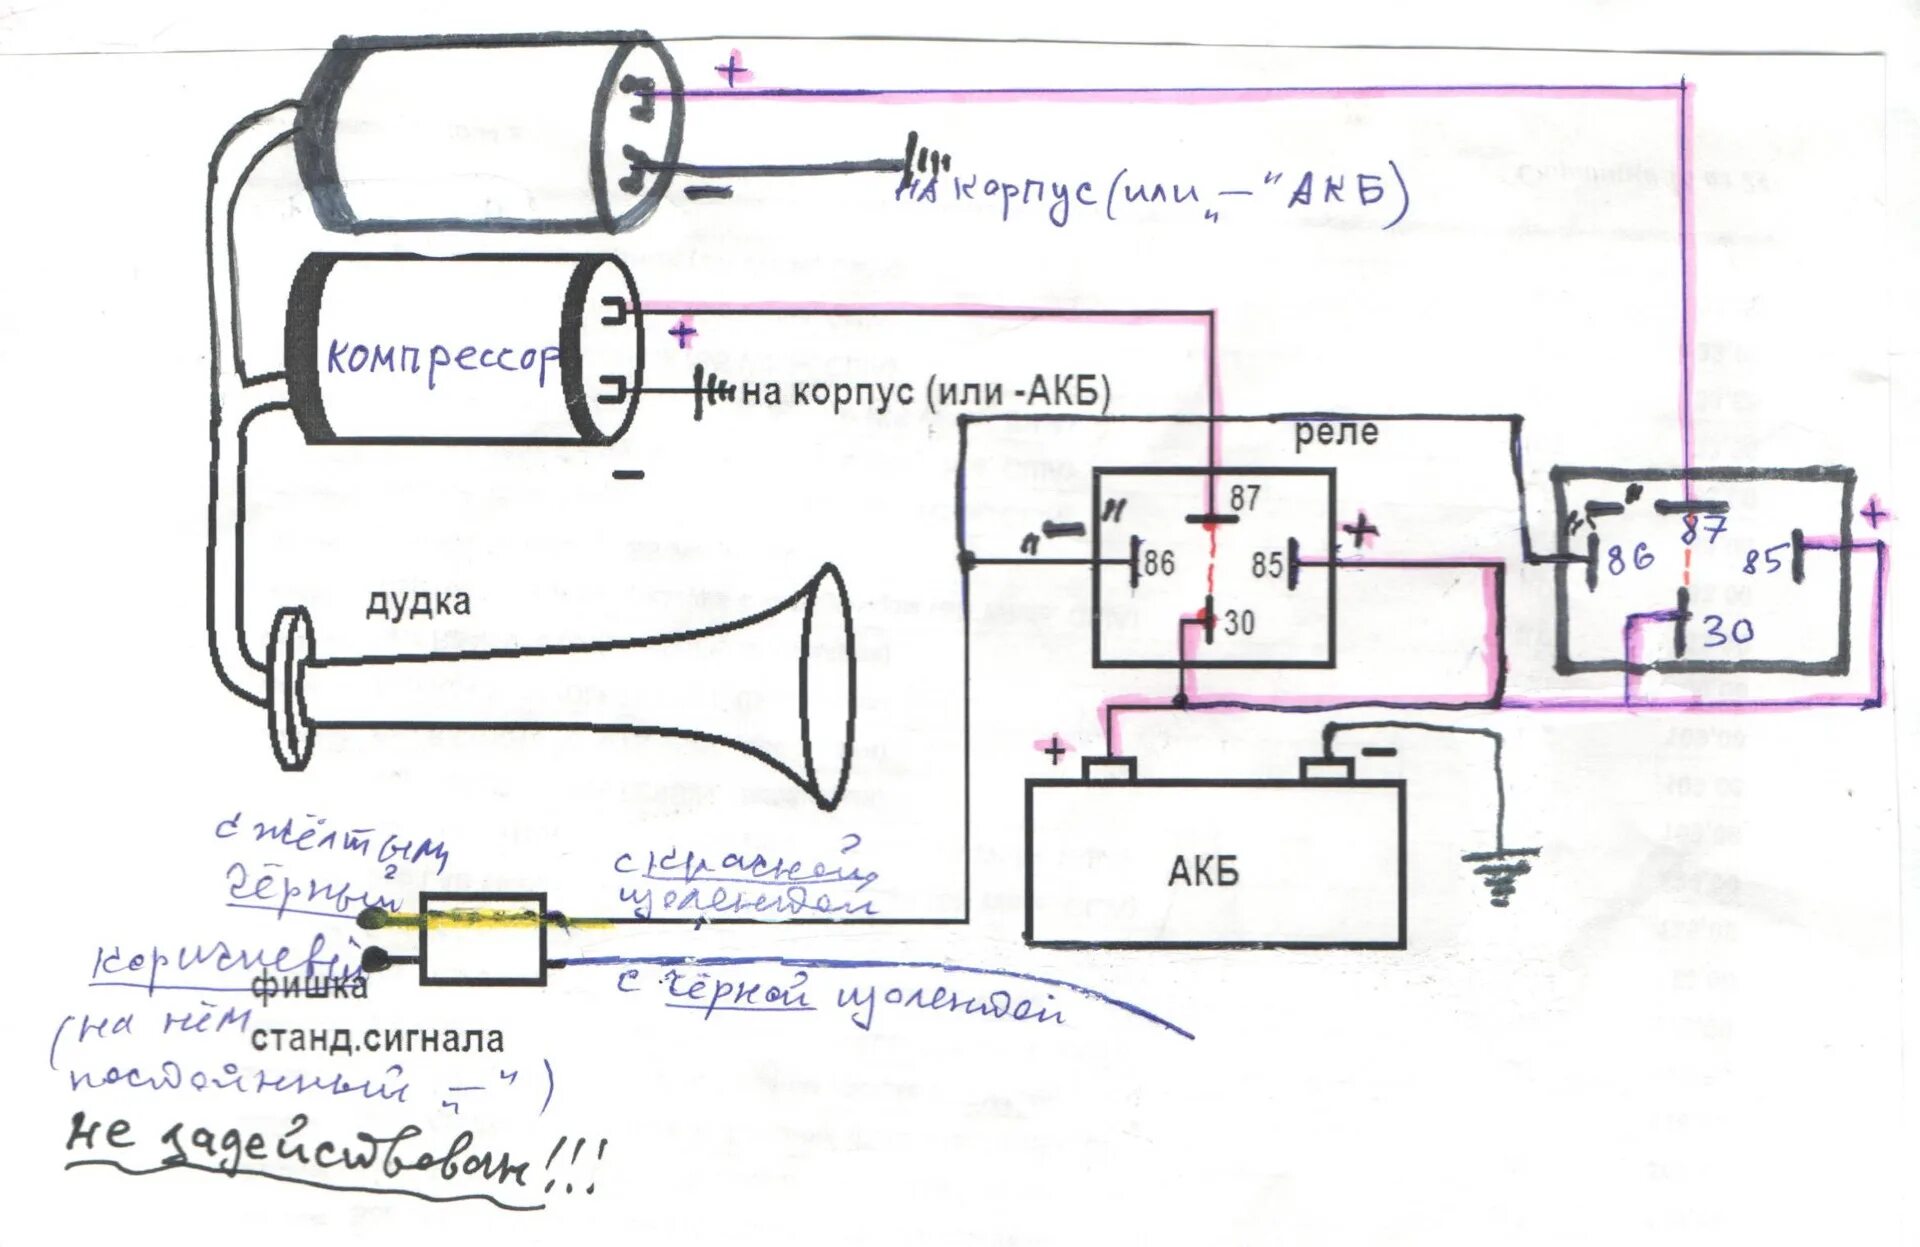 +
на корпус (или „—" АКБ)
компрессор
+
на корпус (или -АКБ)
—
реле
87
"—"
86
85
+
30
"—"
87
86
85
+
30
дудка
+
—
АКБ
с жёлтым
чёрный
с красной
изолентой
коричневый
фишка
с чёрной изолентой
(на нём
станд.сигнала
постоянный „—")
не задействован!!!